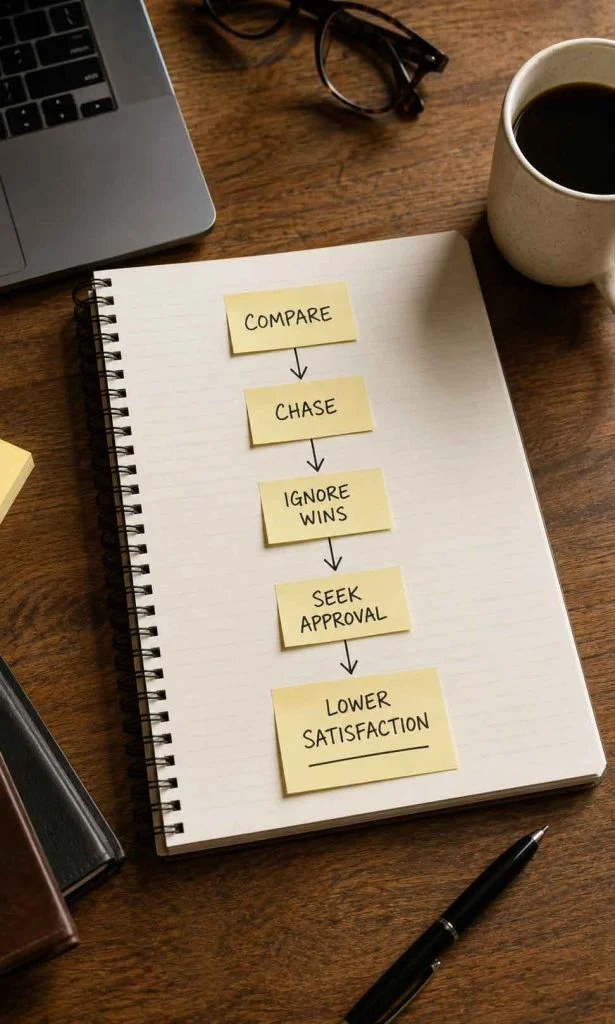 COMPARE
CHASE
IGNORE
WINS
SEEK
APPROVAL
LOWER
SATISFACTION